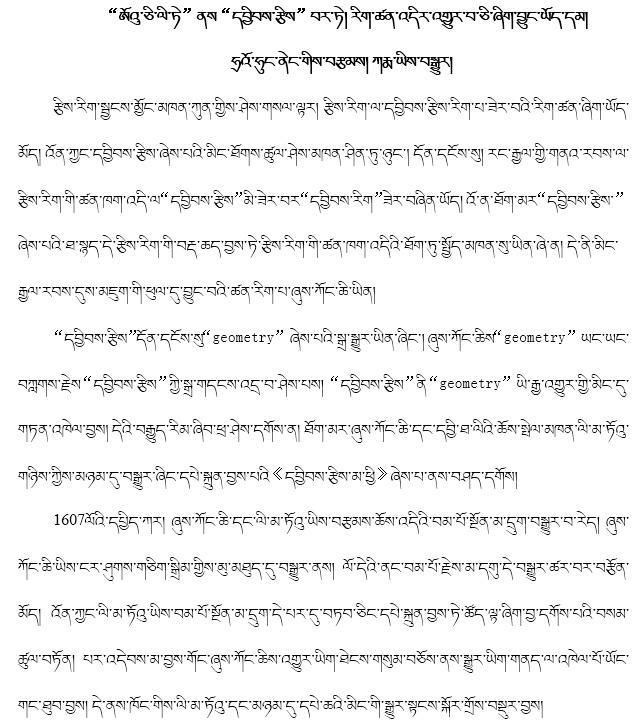 “ཨོའུ་ཅི་ལི་ཏེ” ནས “དབྱིབས་རྩིས” བར་ཏེ། རིག་ཚན་འདིར་འགྱུར་བ་ཅི་ཞིག་བྱུང་ཡོད་དམ།
ཧྲའོ་ཧུང་ནེང་གིས་བརྩམས། ཀརྨ་ཡིས་བསྒྱུར།
རྩིས་རིག་སྦྱངས་མྱོང་མཁན་ཀུན་གྱིས་ཤེས་གསལ་ལྟར། རྩིས་རིག་ལ་དབྱིབས་རྩིས་རིག་པ་ཟེར་བའི་རིག་ཚན་ཞིག་ཡོད་
མོད། འོན་ཀྱང་དབྱིབས་རྩིས་ཞེས་པའི་མིང་ཐོགས་ཚུལ་ཤེས་མཁན་ཤིན་ཏུ་ཉུང་། དོན་དངོས་སུ། རང་རྒྱལ་གྱི་གནའ་རབས་ལ་
རྩིས་རིག་གི་ཚན་ཁག་འདི་ལ“དབྱིབས་རྩིས”མི་ཟེར་བར“དབྱིབས་རིག”ཟེར་བཞིན་ཡོད། འོ་ན་ཐོག་མར“དབྱིབས་རྩིས་”
ཞེས་པའི་ཐ་སྙད་དེ་རྩིས་རིག་གི་བརྡ་ཆད་བྱས་ཏེ་རྩིས་རིག་གི་ཚན་ཁག་འདིའི་ཐོག་ཏུ་སྤྱོད་མཁན་སུ་ཡིན་ཞེ་ན། དེ་ནི་མིང་
རྒྱལ་རབས་དུས་མཇུག་གི་ཕུལ་དུ་བྱུང་བའི་ཚན་རིག་པ་ཞུས་ཀོང་ཆི་ཡིན།
“དབྱིབས་རྩིས”དོན་དངོས་སུ“geometry” ཞེས་པའི་སྒྲ་སྒྱུར་ཡིན་ཞིང་། ཞུས་ཀོང་ཆིས“geometry” ཡང་ཡང་
བཀླགས་རྗེས“དབྱིབས་རྩིས”ཀྱི་སྒྲ་གདངས་འདྲ་བ་ཤེས་པས། “དབྱིབས་རྩིས”ནི“geometry” ཡི་རྒྱ་འགྱུར་གྱི་མིང་དུ་
གཏན་འཁེལ་བྱས། དེའི་བརྒྱུད་རིམ་ཞིབ་ཕྲ་ཤེས་དགོས་ན། ཐོག་མར་ཞུས་ཀོང་ཆི་དང་དབྱི་ཐ་ལིའི་ཆོས་སྤེལ་མཁན་ལི་མ་ཏོའུ་
གཉིས་ཀྱིས་མཉམ་དུ་བསྒྱུར་ཞིང་དཔེ་སྐྲུན་བྱས་པའི《དབྱིབས་རྩིས་མ་ཕྱི》ཞེས་པ་ནས་བཤད་དགོས།
1607ལོའི་དཔྱིད་ཀར། ཞུས་ཀོང་ཆི་དང་ལི་མ་ཏོའུ་ཡིས་བརྩམས་ཆོས་འདིའི་བམ་པོ་སྔོན་མ་དྲུག་བསྒྱུར་བ་རེད། ཞུས་
ཀོང་ཆི་ཡིས་ངར་ཤུགས་གཅིག་སྒྲིམ་གྱིས་མུ་མཐུད་དུ་བསྒྱུར་ནས། ལོ་དེའི་ནང་བམ་པོ་རྗེས་མ་དགུ་དེ་བསྒྱུར་ཚར་བར་བརྩོན་
མོད། འོན་ཀྱང་ལི་མ་ཏོའུ་ཡིས་བམ་པོ་སྔོན་མ་དྲུག་དེ་པར་དུ་བཏབ་ཅིང་དཔེ་སྐྲུན་བྱས་ཏེ་ཚོད་ལྟ་ཞིག་བྱ་དགོས་པའི་བསམ་
ཚུལ་བཏོན། པར་འདེབས་མ་བྱས་གོང་ཞུས་ཀོང་ཆིས་འགྱུར་ཡིག་ཐེངས་གསུམ་བཅོས་ནས་སྒྱུར་ཡིག་གནད་ལ་འཁེལ་པོ་ཡོང་
གང་ཐུབ་བྱས། དེ་ནས་ཁོང་གིས་ལི་མ་ཏོའུ་དང་མཉམ་དུ་དཔེ་ཆའི་མིང་གི་སྒྱུར་སྟངས་སྐོར་གྲོས་བསྡུར་བྱས།